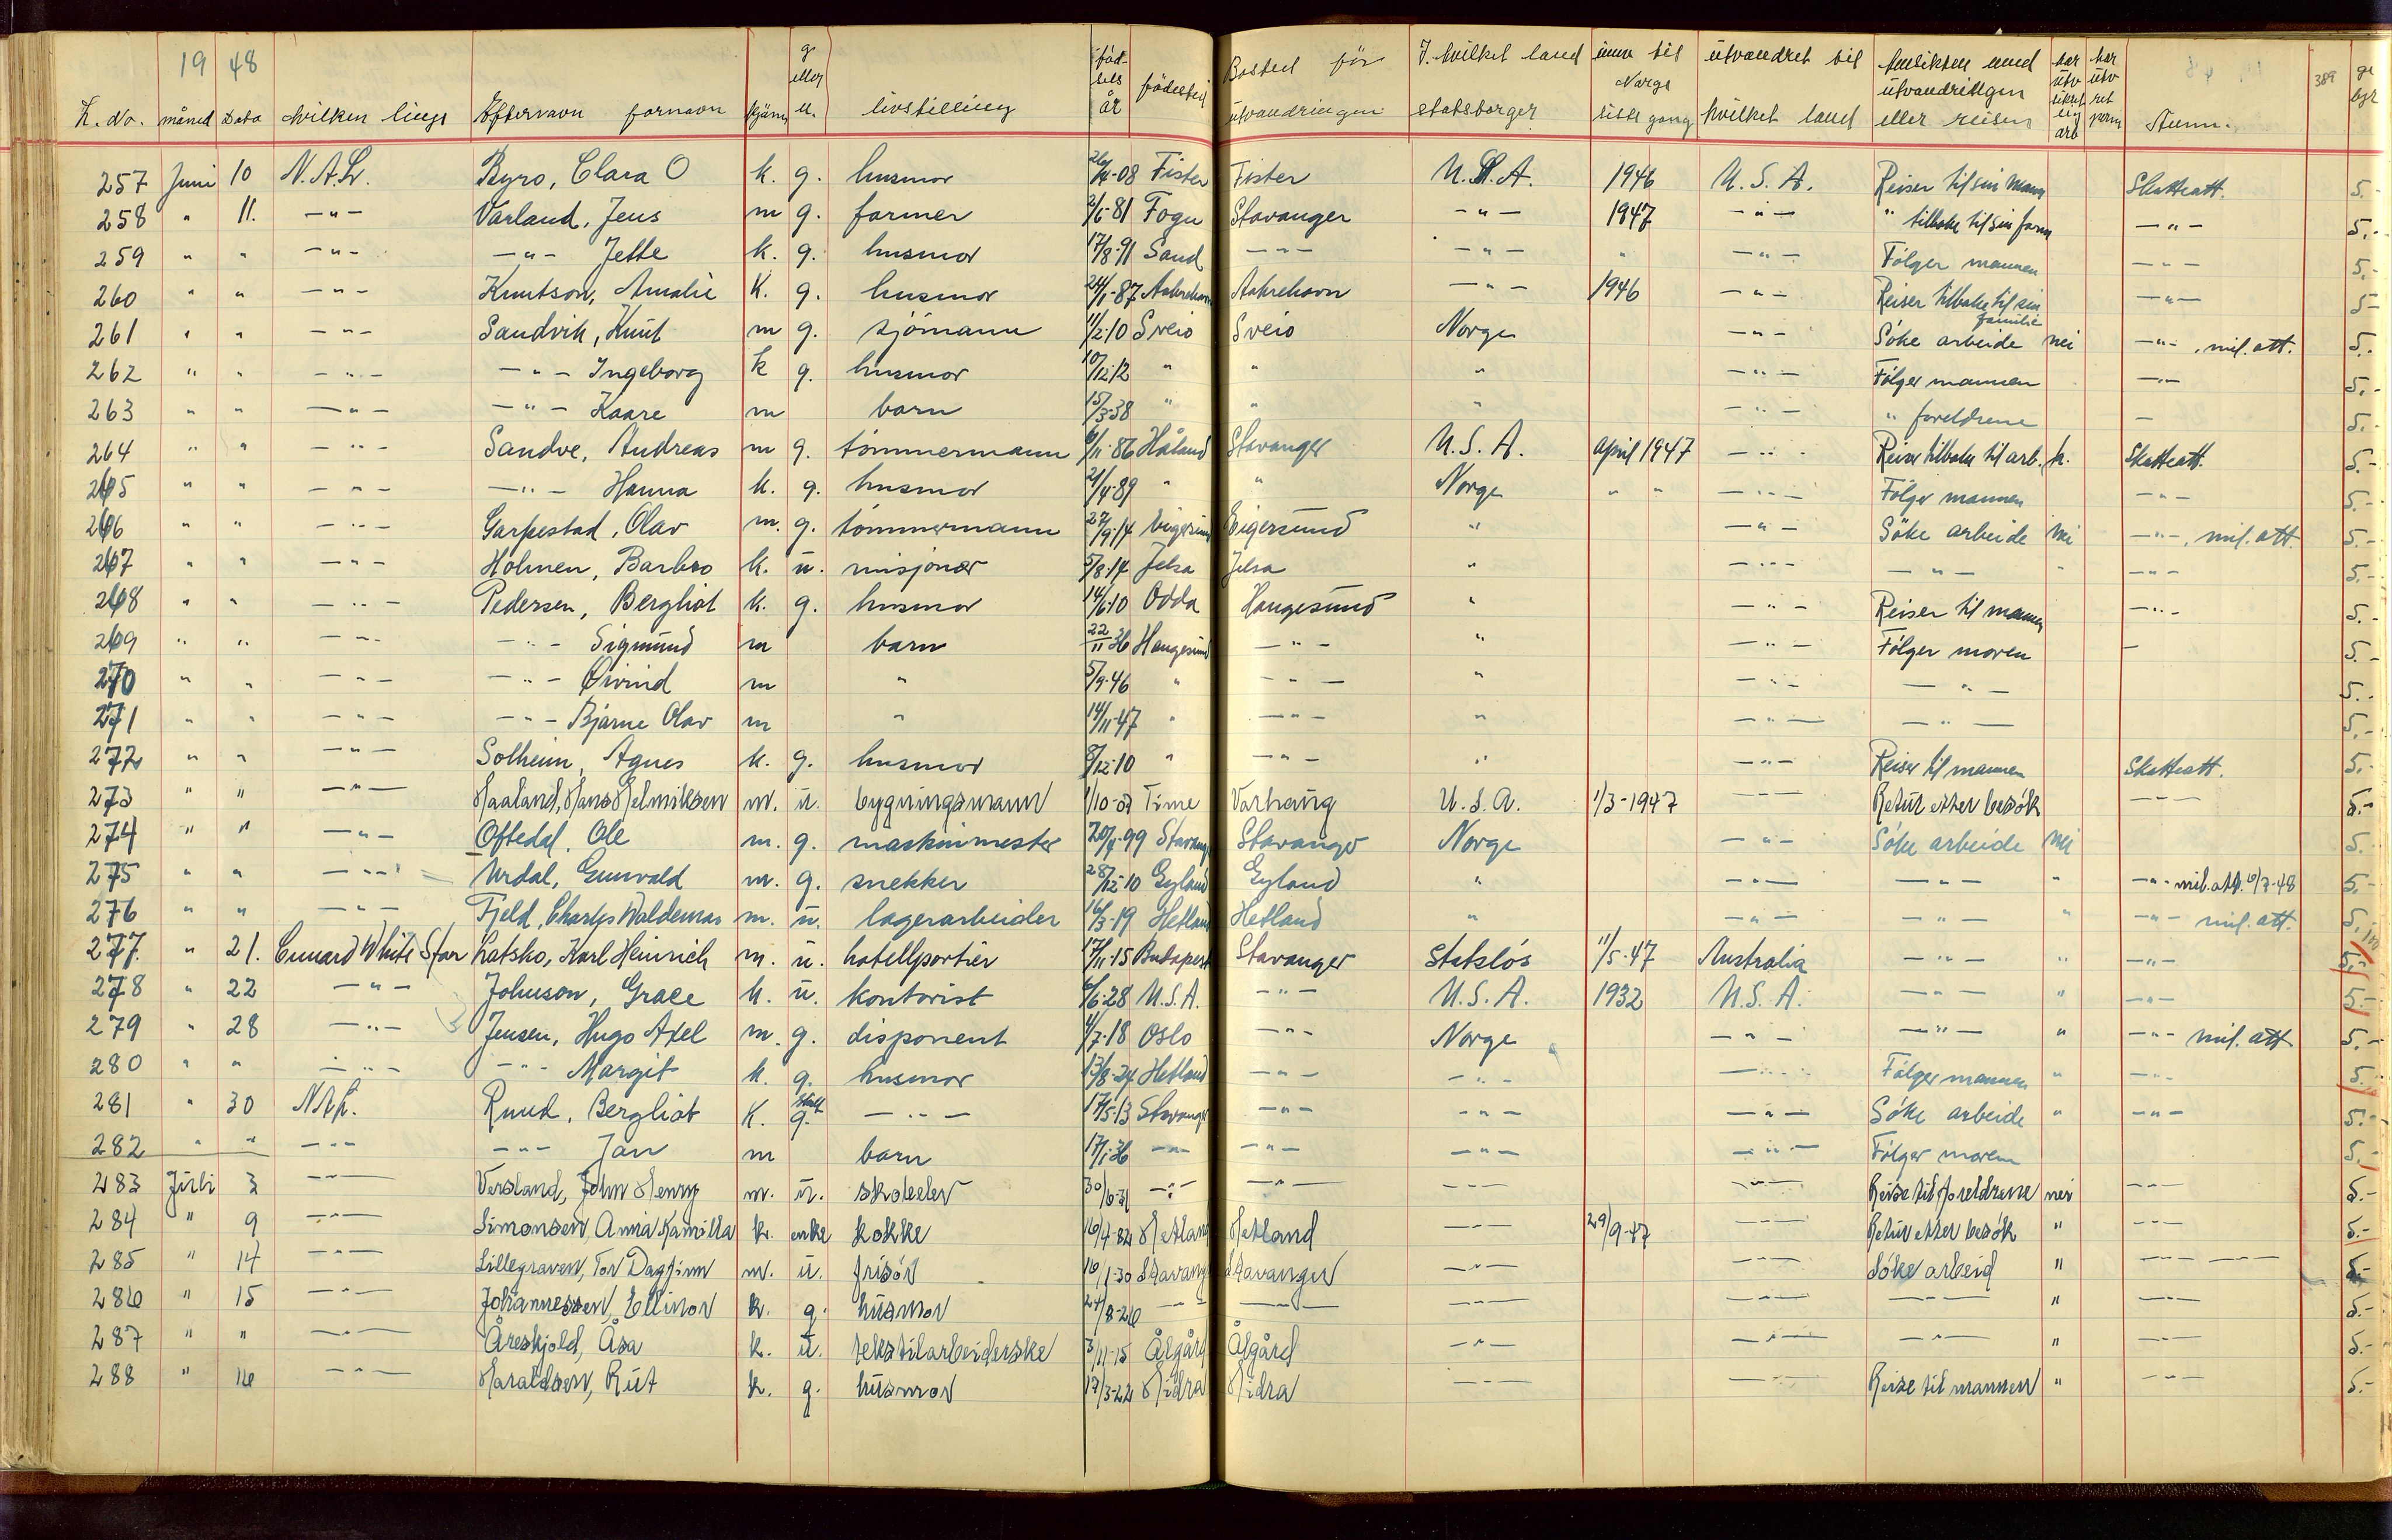 19 48
L. No. måned Dato hvilken linge Efternavn fornavn kjønn g eller u. livstilling föd-sels år födested Bosted för utvandringen I. hvilket land statsborger inn til Norge siste gang utvandret til hvilket land hensikten med utvandringen eller reisen har utv sikret sig arb har utv ret perm Anm. 389 ge byr
257 Juni 10 N.A.L. Byro, Clara O k. g. husmor 26/4-08 Fister Fister U.S.A. 1946 U.S.A. Reiser til sin mann Skatteatt. 5.-
258 " 11. -"- Varland, Jens m g. farmer 2/5-81 Fogn Stavanger -"- 1947 -"- " tilbake til sin farm -"- 5.-
259 " " -"- -"- Jette k. g. husmor 17/8-91 Sand -"- -"- " -"- Følger mannen -"- 5.-
260 " " -"- Knutson, Amalie K. g. husmor 24/1-87 Aakrehavn Aakrehavn -"- 1946 -"- Reiser tilbake til sin familie -"- 5-
261 " " -"- Sandvik, Knut m g. sjömann 11/2-10 Sveio Sveio Norge -"- Söke arbeide nei -"- , mil. att. 5.-
262 " " -"- -"- Ingeborg k g. husmor 10/12-12 " " " -"- Følger mannen -"- 5.-
263 " " -"- -"- Kaare m barn 15/3-38 " " " -"- " foreldrene - 5.-
264 " " -"- Sandve, Andreas m g. tömmermann 6/11-86 Håland Stavanger U.S.A. April 1947 -"- Reiser tilbake til arb. k. Skatteatt. 5.-
265 " " -"- -"- Hanna k. g. husmor 21/4-89 " " Norge " " -"- Følger mannen -"- 5.-
266 " " -"- Garpestad, Olav m. g. tömmermann 27/9-14 Eigersund Eigersund " -"- Söke arbeide nei -"-, mil. att. 5.-
267 " " -"- Holmen, Barbro k. u. misjonær 5/8-14 Jelsa Jelsa " -"- -"- " -"- 5.-
268 " " -"- Pedersen, Bergliot k. g. husmor 14/6-10 Odda Haugesund " -"- Reiser til mannen -"- 5.-
269 " " -"- -"- Sigmund m barn 22/11-36 Haugesund -"- " -"- Følger moren - 5.-
270 " " -"- -"- Øivind m " 5/9-46 " -"- " -"- -"- 5.-
271 " " -"- -"- Bjarne Olav m " 14/11-47 " -"- " -"- -"- 5.-
272 " " -"- Solheim, Agnes k. g. husmor 8/12-10 " -"- " -"- Reiser til mannen Skatteatt. 5.-
273 " " -"- Haaland, Hans Helmiksen m. u. bygningsmann 1/10-07 Time Varhaug U.S.A. 1/3-1947 -"- Retur etter besök -"- 5.-
274 " " -"- Oftedal, Ole m. g. maskinmester 20/4-99 Stavanger Stavanger Norge -"- Söke arbeide nei 5.-
275 " " -"- Urdal, Gunvald m. g. snekker 28/12-10 Gyland Gyland " -"- -"- " -"- mil. att. 6/7-48 5.-
276 " " -"- Fjeld, Charles Waldemar m. u. lagerarbeider 16/3-19 Hetland Hetland " -"- -"- " -"- mil. att. 5.-
277. " 21. Cunard White Star Latsko, Karl Heinrich m. u. hotellportier 17/11-15 Budapest Stavanger Statslös 11/5-47 Australia -"- " -"- 5.-
278 " 22 -"- Johnson, Grace k. u. kontorist 6/6-28 U.S.A. -"- U.S.A. 1932 U.S.A. -"- " -"- 5.-
279 " 28 -"- Jensen, Hugo Axel m. g. disponent 4/7-18 Oslo -"- Norge -"- -"- " -"- mil. att 5.-
280 " " -"- -"- Margit k. g. husmor 13/8-24 Hetland -"- -"- -"- Følger mannen " -"- 5.-
281 " 30 NAL. Ruud, Bergliot K. skilt g. -"- 17/5-13 Stavanger -"- -"- -"- Söke arbeide " -"- 5.-
282 " " -"- -"- Jan m barn 17/1-36 -"- -"- -"- -"- Følger moren 5.-
283 Juli 3 -"- Versland, John Henry m. u. skoleelev 30/6-31 -"- -"- -"- -"- Reise til foreldrene nei -"- 5.-
284 " 9 -"- Simonsen, Anna Kamilla k. enke kokke 16/4-82 Hetland Hetland -"- 29/9-47 -"- Retur etter besök " -"- 5.-
285 " 14 -"- Lillegraven, Tor Dagfinn m. u. frisör 16/1-30 Stavanger Stavanger -"- -"- Söke arbeid " -"- -"- 5.-
286 " 15 -"- Johannessen, Ellinor k. g. husmor 24/8-26 -"- -"- -"- -"- -"- " -"- 5.-
287 " " -"- Åreskjold, Åsa k. u. tekstilarbeiderske 3/11-15 Ålgård Ålgård -"- -"- -"- " -"- 5.-
288 " 16 -"- Haraldsen, Rut k. g. husmor 17/3-22 Hidra Hidra -"- -"- Reise til mannen " -"- 5.-